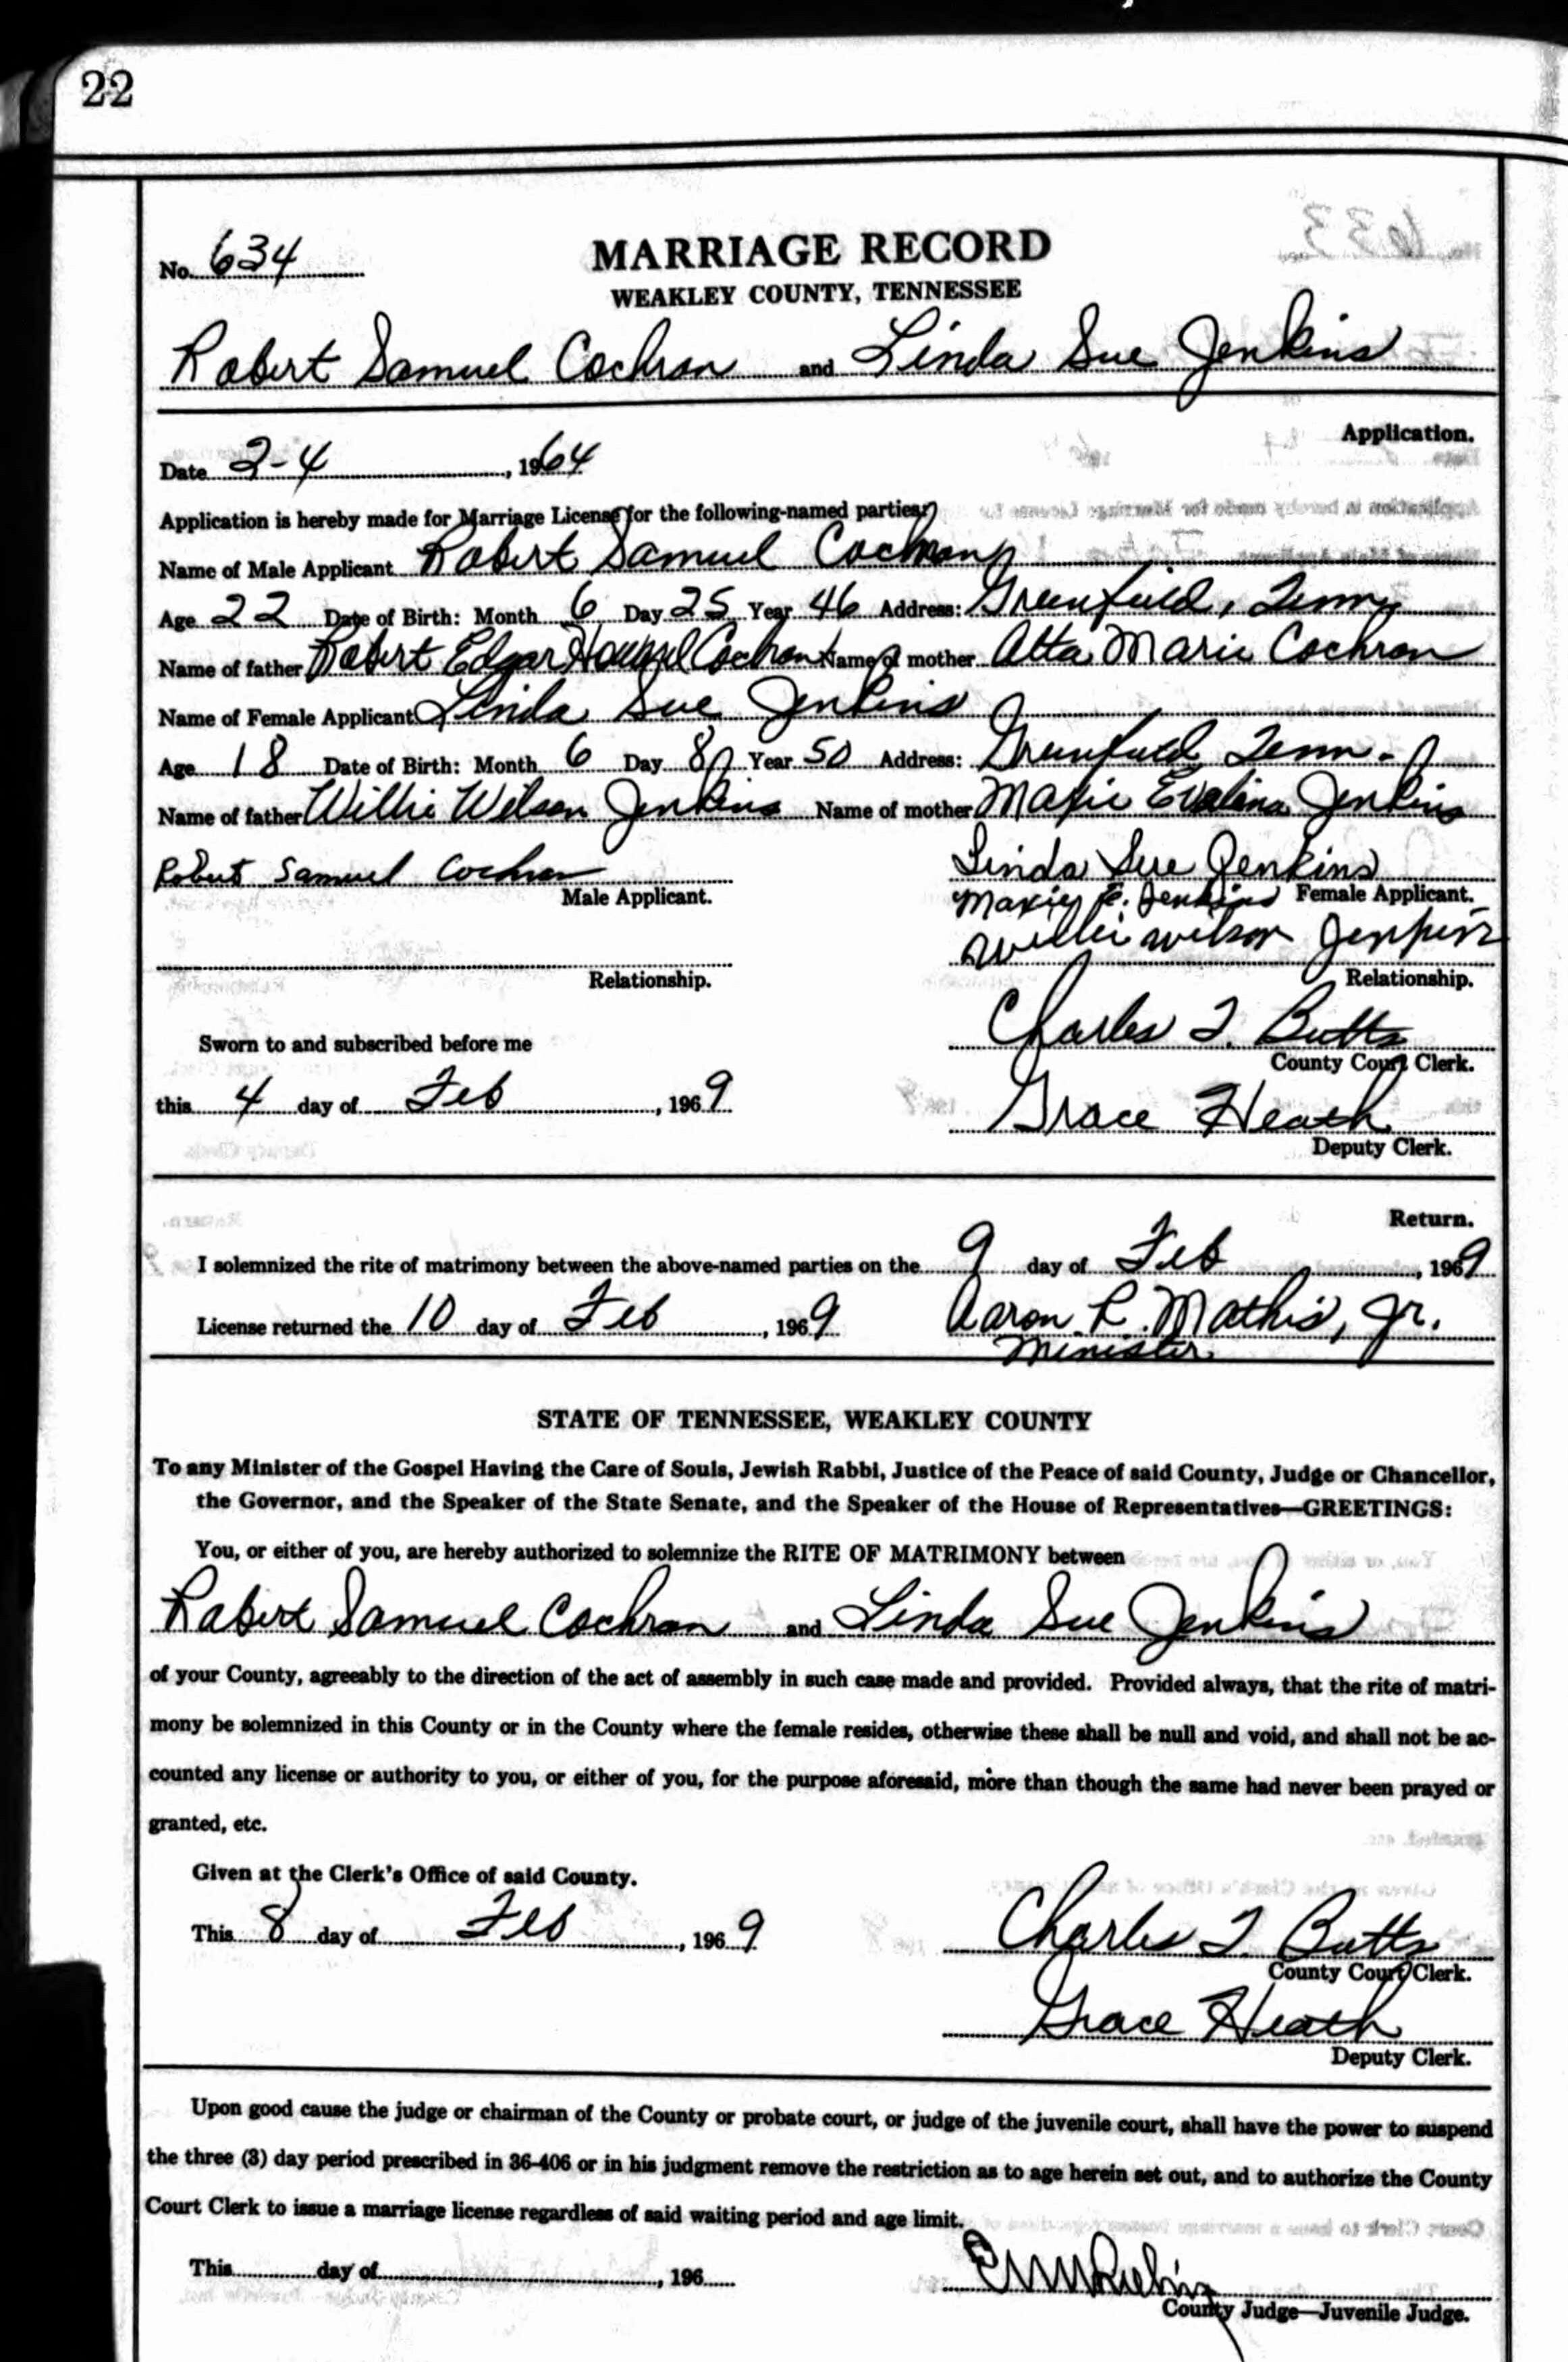 22
No. 634
MARRIAGE RECORD
WEAKLEY COUNTY, TENNESSEE
Robert Samuel Cochran and Linda Sue Jenkins
Application.
Date 2-4, 1964
Application is hereby made for Marriage License for the following-named parties:
Name of Male Applicant Robert Samuel Cochran
Age 22 Date of Birth: Month 6 Day 25 Year 46 Address: Greenfield, Tenn.
Name of father Robert Edgar Cochran Name of mother Atta Marie Cochran
Name of Female Applicant Linda Sue Jenkins
Age 18 Date of Birth: Month 6 Day 8 Year 50 Address: Greenfield Tenn.
Name of father Willie Wilson Jenkins Name of mother Maxie Evalina Jenkins
Robert Samuel Cochran Linda Sue Jenkins
Male Applicant. Maxie E. Jenkins Female Applicant.
Willie Wilson Jenkins
Relationship. Relationship.
Charles T. Butts
Sworn to and subscribed before me
County Court Clerk.
this 4 day of Feb, 1969 Grace Heath
Deputy Clerk.
Return.
I solemnized the rite of matrimony between the above-named parties on the 9 day of Feb, 1969
License returned the 10 day of Feb, 1969 Aaron L. Mathis, Jr.
Minister
STATE OF TENNESSEE, WEAKLEY COUNTY
To any Minister of the Gospel Having the Care of Souls, Jewish Rabbi, Justice of the Peace of said County, Judge or Chancellor,
the Governor, and the Speaker of the State Senate, and the Speaker of the House of Representatives—GREETINGS:
You, or either of you, are hereby authorized to solemnize the RITE OF MATRIMONY between
Robert Samuel Cochran and Linda Sue Jenkins
of your County, agreeably to the direction of the act of assembly in such case made and provided. Provided always, that the rite of matri-
mony be solemnized in this County or in the County where the female resides, otherwise these shall be null and void, and shall not be ac-
counted any license or authority to you, or either of you, for the purpose aforesaid, more than though the same had never been prayed or
granted, etc.
Given at the Clerk's Office of said County.
This 8 day of Feb, 1969 Charles T. Butts
County Court Clerk.
Grace Heath
Deputy Clerk.
Upon good cause the judge or chairman of the County or probate court, or judge of the juvenile court, shall have the power to suspend
the three (3) day period prescribed in 36-406 or in his judgment remove the restriction as to age herein set out, and to authorize the County
Court Clerk to issue a marriage license regardless of said waiting period and age limit.
This day of, 196
County Judge—Juvenile Judge.